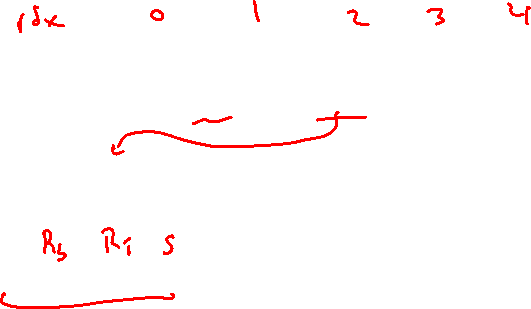 idx 0 1 2 3 4
R5 R1 S